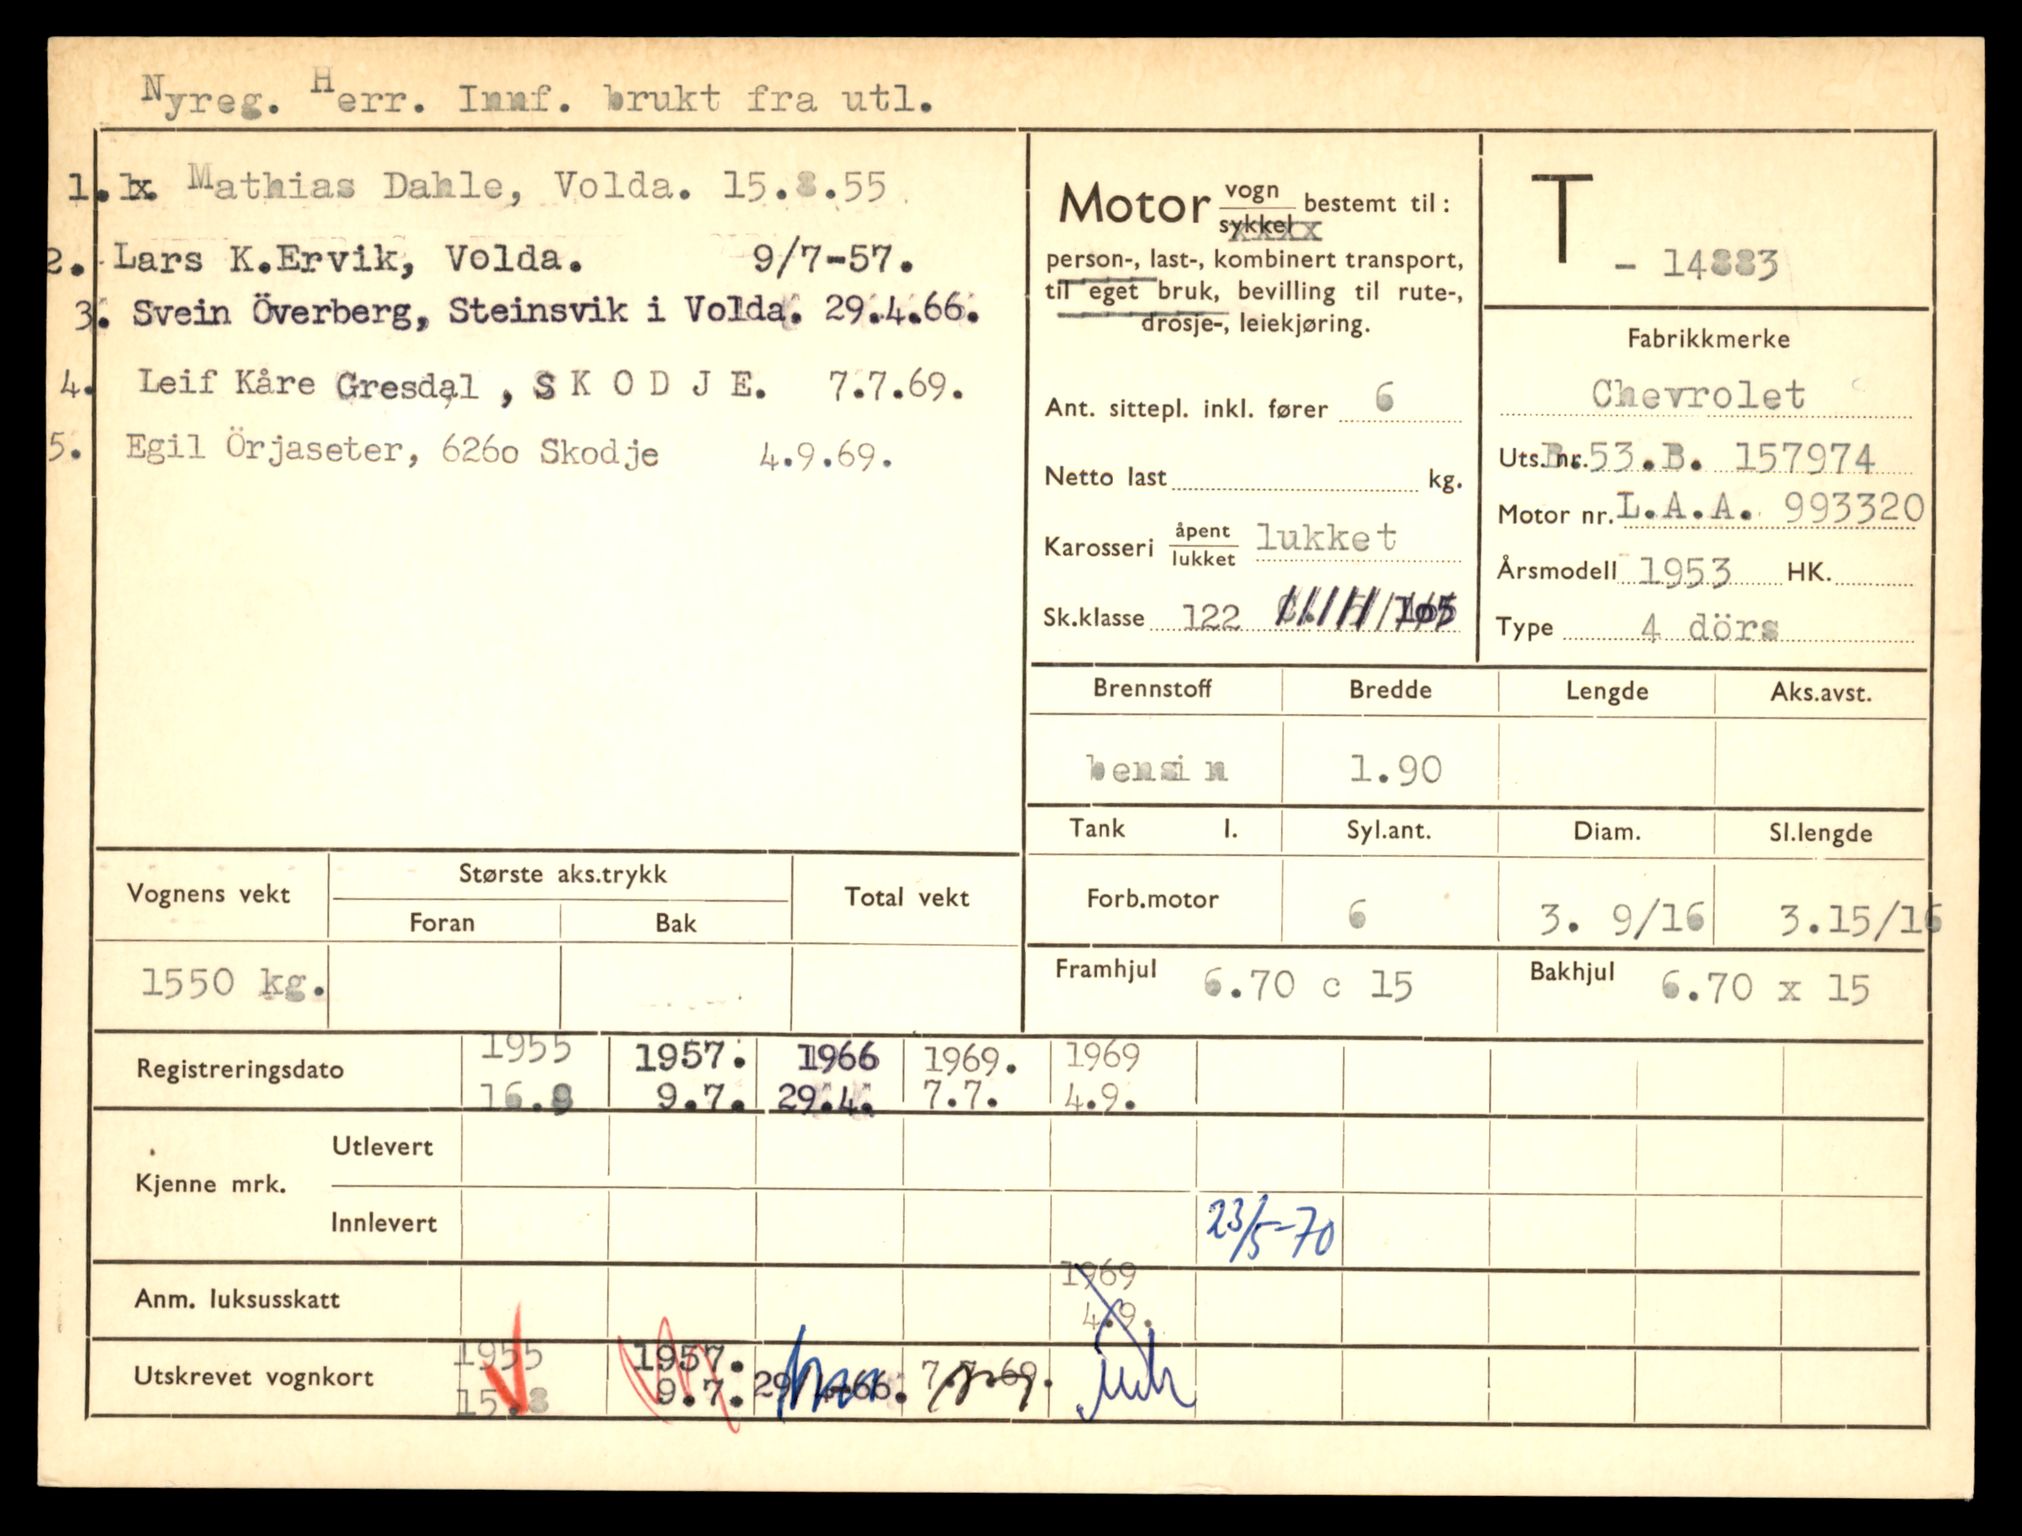 Nyreg. Herr. Innf. brukt fra utl.
1. Mathias Dahle, Volda. 15.8.55
2. Lars K.Ervik, Volda. 9/7-57.
3. Svein Överberg, Steinsvik i Volda. 29.4.66.
4. Leif Kåre Gresdal , S K O D J E. 7.7.69.
5. Egil Örjaseter, 6260 Skodje 4.9.69.
Motor vogn/sykkel bestemt til:
person-, last-, kombinert transport,
til eget bruk, bevilling til rute-,
drosje-, leiekjøring.
Ant. sittepl. inkl. fører 6
Netto last kg.
Karosseri åpent/lukket lukket
Sk.klasse 122 105
T - 14883
Fabrikkmerke
Chevrolet
Uts. nr. B.53.B. 157974
Motor nr. L.A.A. 993320
Årsmodell 1953 HK.
Type 4 dörs
Brennstoff Bredde Lengde Aks.avst.
bensin 1.90
Tank l. Syl.ant. Diam. Sl.lengde
Forb.motor 6 3. 9/16 3.15/16
Framhjul 6.70 c 15 Bakhjul 6.70 x 15
Vognens vekt Største aks.trykk Total vekt
Foran Bak
1550 kg.
Registreringsdato 1955 1957. 1966 1969. 1969
16.8 9.7. 29.4. 7.7. 4.9.
Kjenne mrk. Utlevert
Innlevert 23/5-70
Anm. luksusskatt 1969
4.9.
Utskrevet vognkort 1955 1957. 29.4-66. 7.7.69.
15.8 9.7.